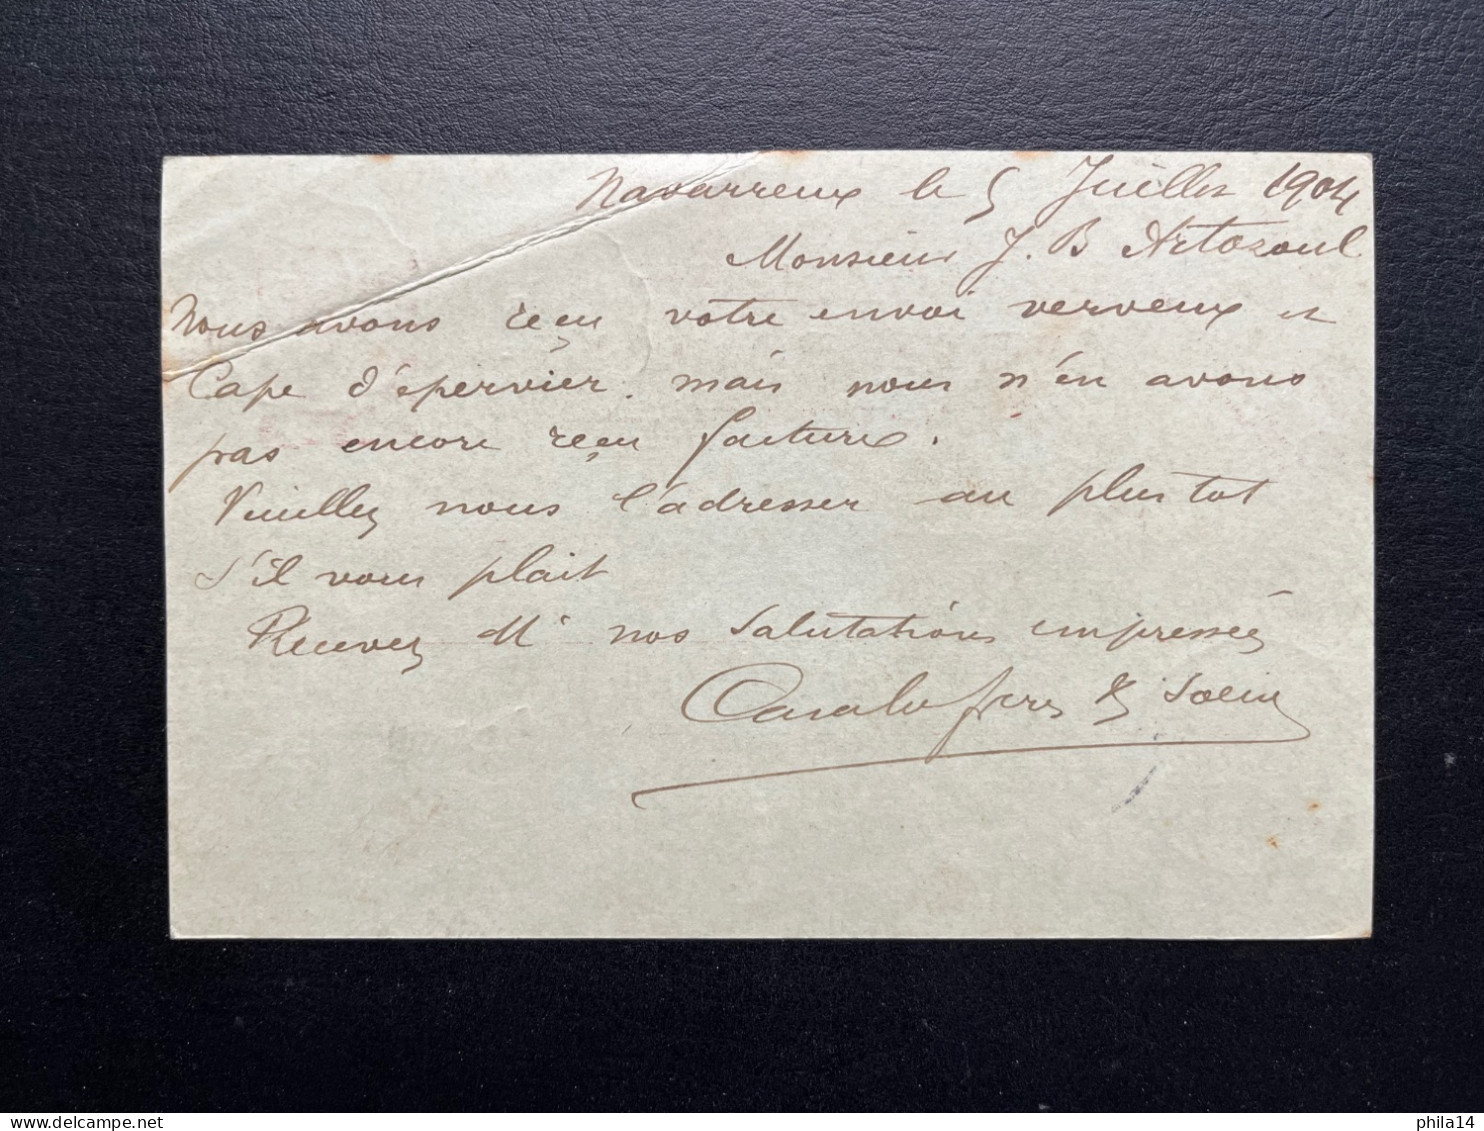 Navarreux le 5 Juillet 1904
Monsieur J. B Artozoul
Nous avons reçu votre envoi verveux et
Cape d'épervier. mais nous n'en avons
pas encore reçu facture.
Veuillez nous l'adresser au plus tot
s'il vous plait
Recevez Mr nos salutations empressées
frères & Soeur
phila14